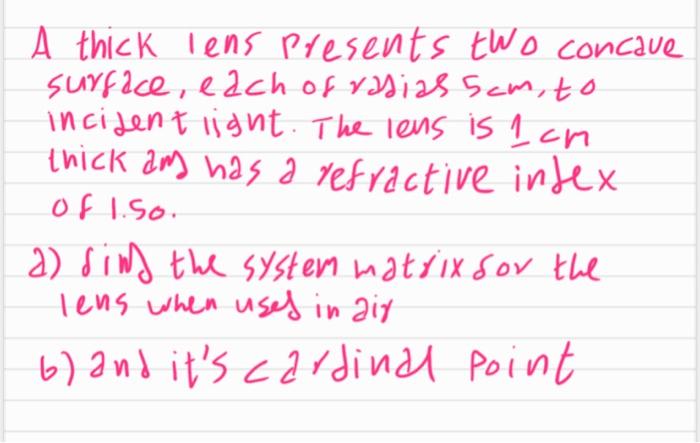 A thick lens presents two concave
surface, each of radias 5cm, to
incident light. The lens is 1 cm
thick and has a refractive index
of 1.50.
a) find the system matrix for the
lens when used in air
b) and it's cardinal point